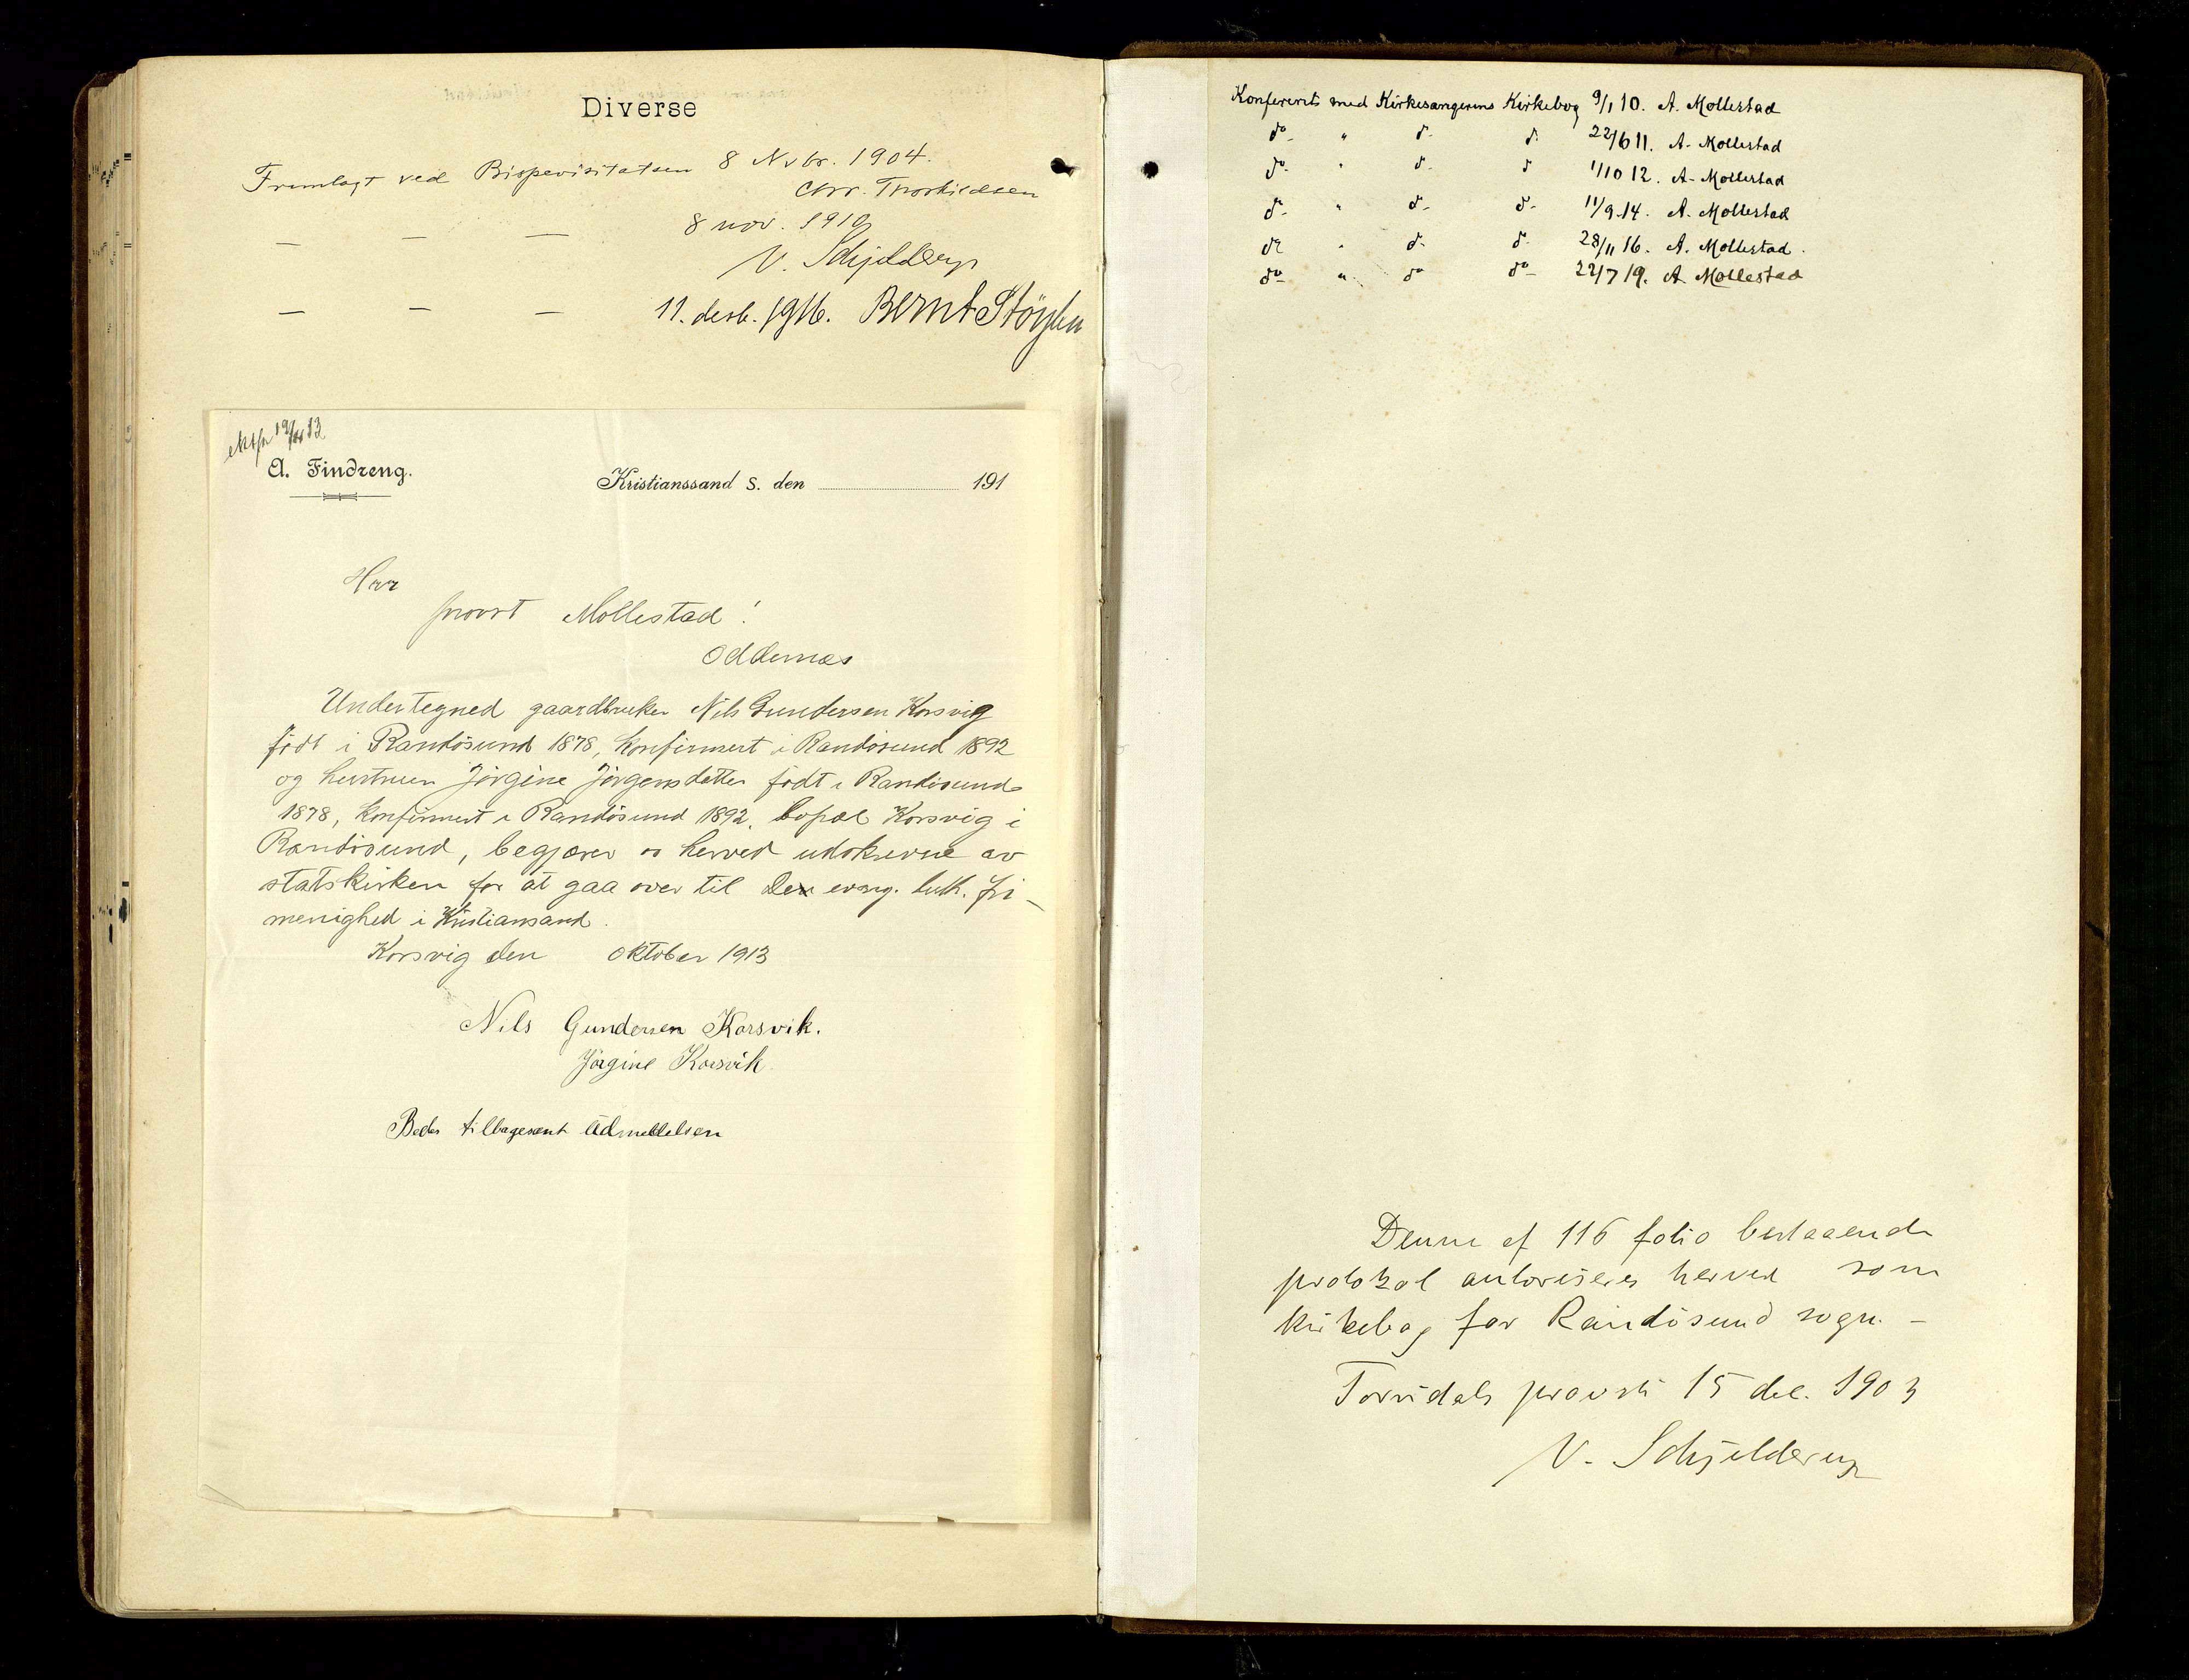 Diverse
Fremlagt ved Bispevisitatsen 8 Nvbr. 1904.
Chr. Thorkildsen
— — — 8 nov. 1910
V. Schjelderup
— — — 11. desb. 1916. Bernt Støylen
19/10 13
A. Findreng.
Kristianssand S. den 191
Herr
provst Mollestad!
Oddernæs
Undertegned gaardbruker Nils Gundersen Korsvig
født i Randøsund 1878, konfirmert i Randøsund 1892
og hustruen Jörgine Jörgensdatter født i Randøsund
1878, konfirmert i Randøsund 1892, bopæl Korsvig i
Randøsund, begjærer os herved udskrevne av
statskirken for at gaa over til Den evang. luth. fri-
menighed i Kristiansand.
Korsvig den oktober 1913
Nils Gundersen Korsvik.
Jörgine Korsvik
Bedes tilbagesent Udmeldelsen
Konferert med Kirkesangerens Kirkebog 9/1 10. A. Mollestad
do " do do 22/6 11. A. Mollestad
do " do do 1/10 12. A. Mollestad
do " do do 11/9 14. A. Mollestad
do " do do 28/11 16. A. Mollestad.
do " do do 22/7 19. A. Mollestad
Denne af 116 folio bestaaende
protokol autoriseres herved som
kirkebog for Randøsund sogn. –
Torridals provsti 15 dec. 1903
V. Schjelderup